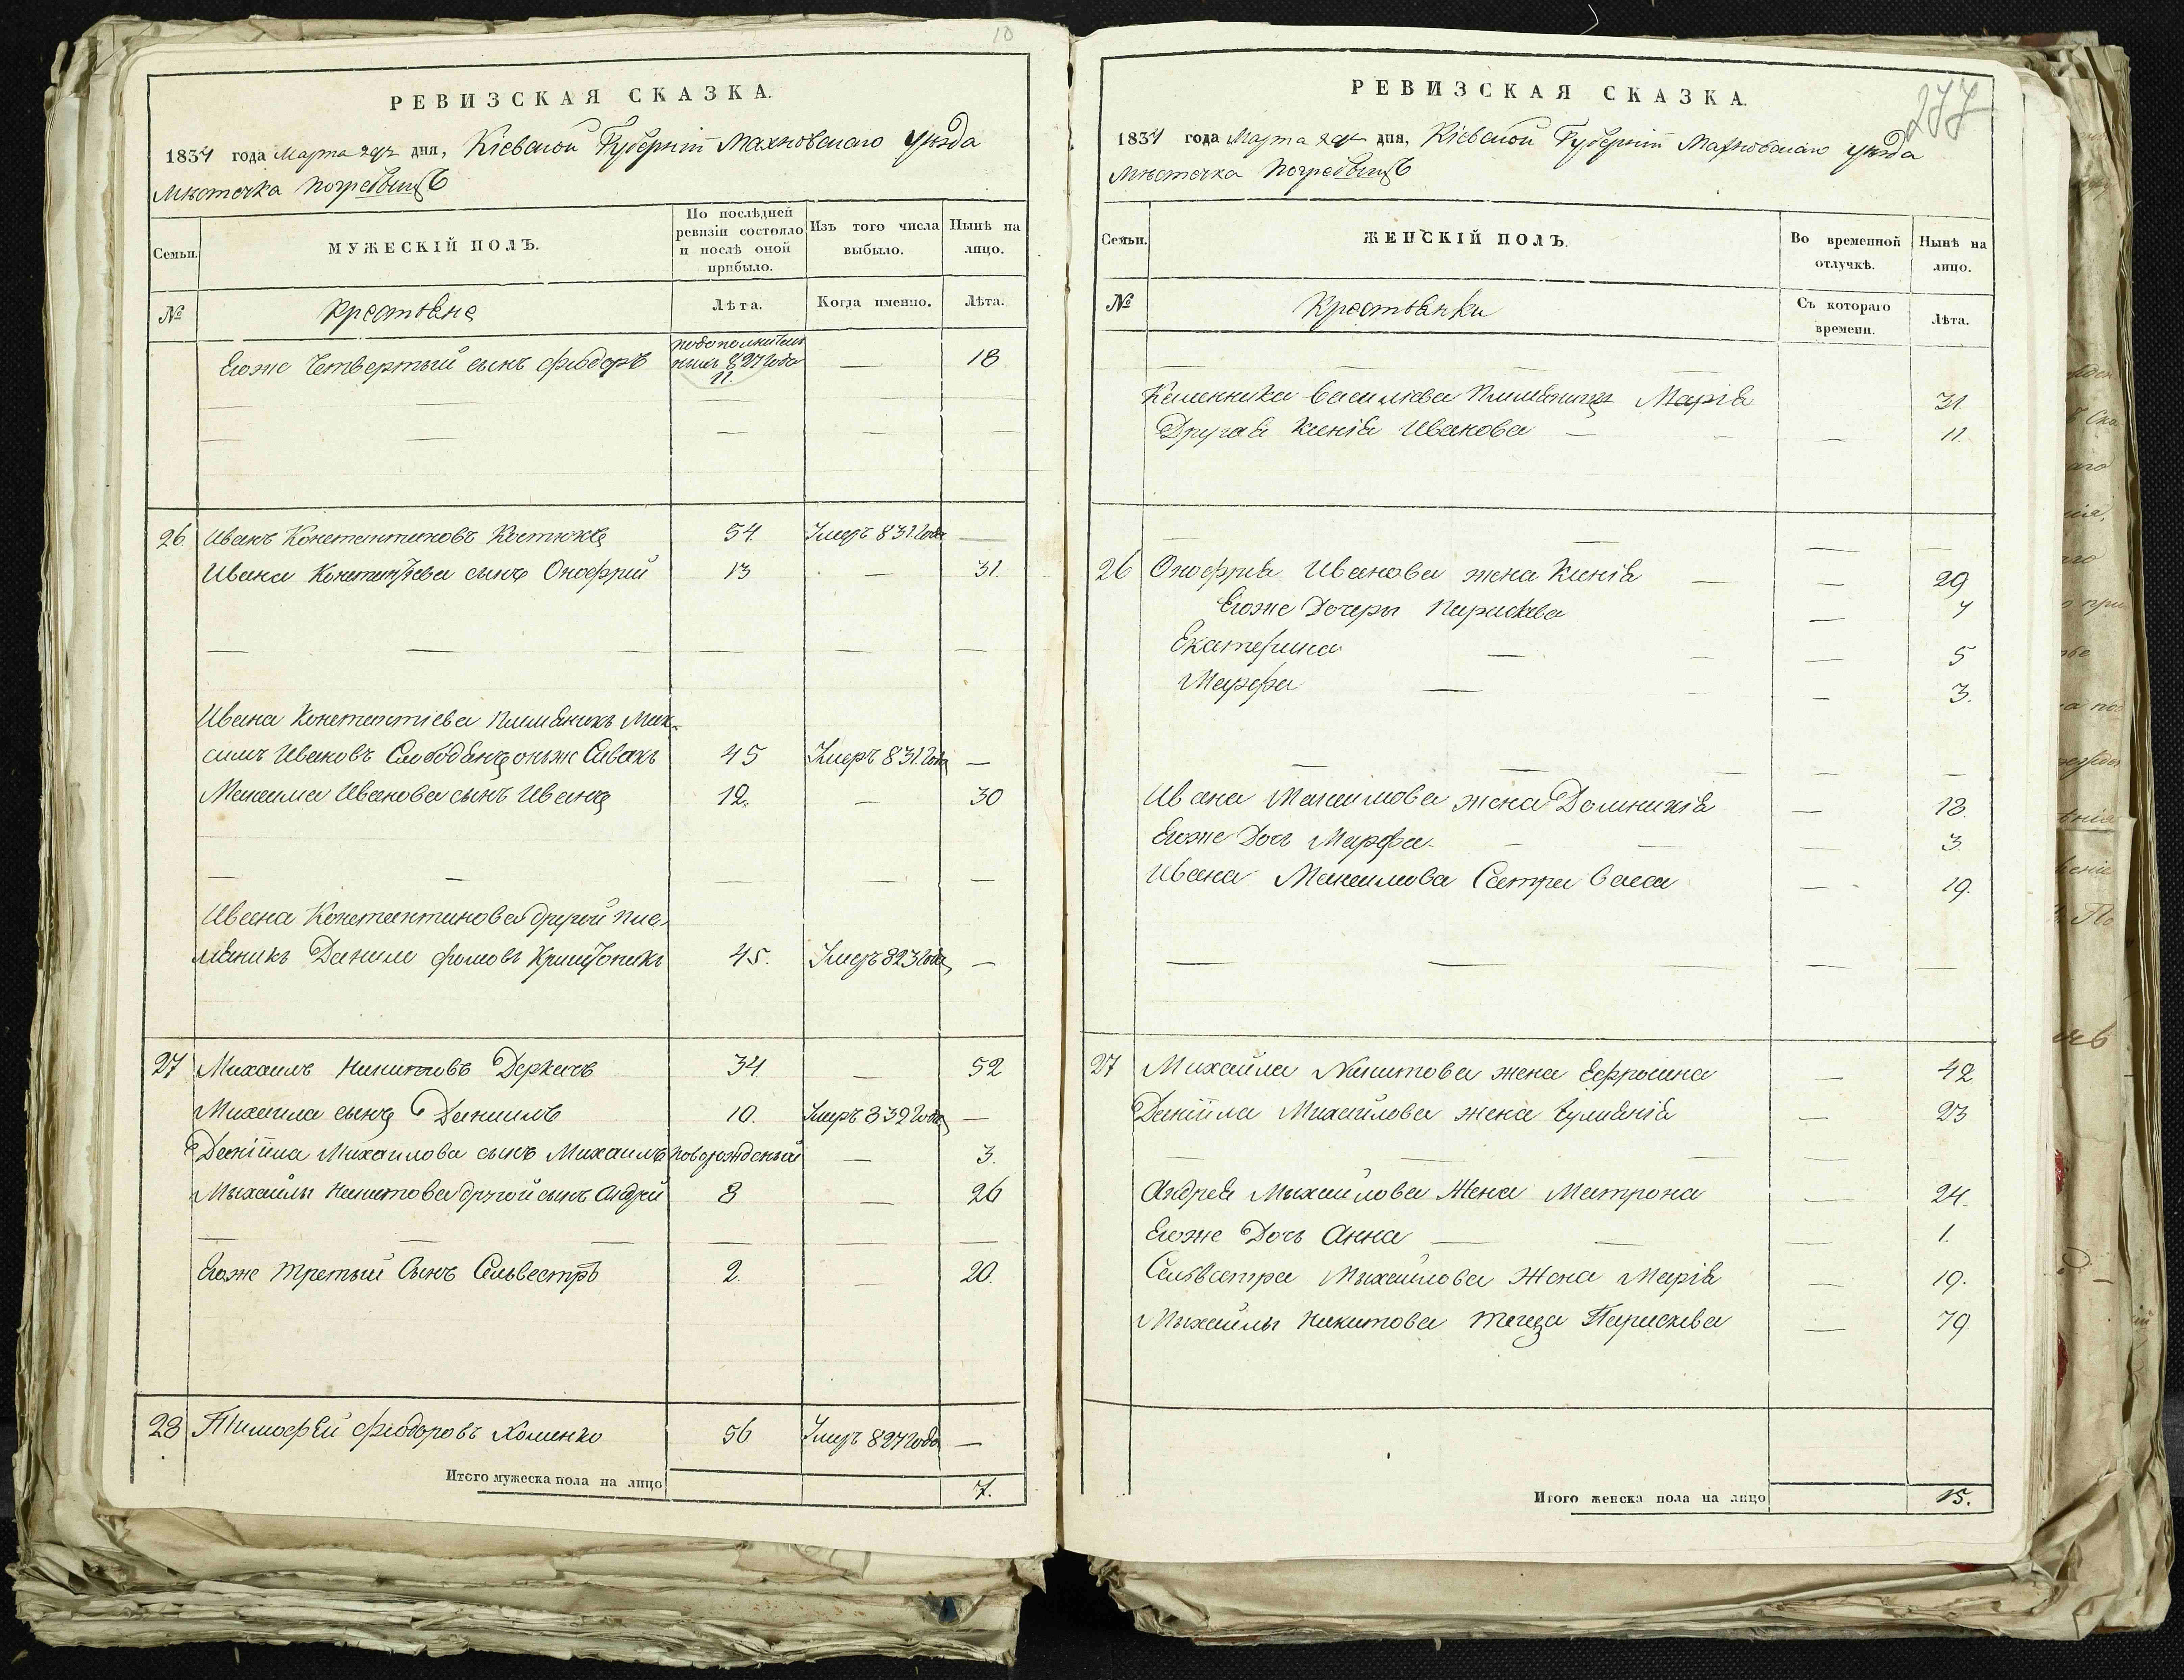 10
РЕВИЗСКАЯ СКАЗКА.
1834 года Марта дня, Кіевской Губерніи Махновскаго уѣзда
Мѣстечка Погребищъ
Семьи.
МУЖЕСКІЙ ПОЛЪ.
По послѣдней ревизіи состояло и послѣ оной прибыло.
Изъ того числа выбыло.
Нынѣ на лицо.
№
Крестьяне
Лѣта.
Когда именно.
Лѣта.
Егоже Четвертый сынъ Феодоръ 827 года 11. — 18
26 Иванъ Константиновъ 54. Умеръ 831. года —
Ивана сынъ Онофрій 13 — 31.
Ивана Константіева племѣникъ Мак-
симъ Ивановъ онъ же Сивакъ 45 Умеръ 831. года —
Максима Иванова сынъ Иванъ 12. — 30
Ивана Константинова другой пле-
мѣникъ Данило Фомовъ 45. Умеръ 823 года —
27 Михаилъ Никитовъ Деркачъ 34. — 52
Михаила сынъ Даніилъ 10. Умеръ 832 года —
Даніила Михаилова сынъ Михаилъ новорожденый — 3.
Мыхайлы Никитова другой сынъ Андрей 8 — 26
Егоже третый Сынъ Сельвестръ 2. — 20.
28 Тимофѣй Феодоровъ Хоменко 56 Умеръ 827 года —
Итого мужеска пола на лицо 7.
277
РЕВИЗСКАЯ СКАЗКА.
1834 года Марта дня, Кіевской Губерніи Махновскаго уѣзда
Мѣстечка Погребищъ
Семьи.
ЖЕНСКІЙ ПОЛЪ.
Во временной отлучкѣ.
Нынѣ на лицо.
№
Крестьянки
Съ котораго времени.
Лѣта.
Василіева Марія 31.
Другая Ксенія Иванова — 11.
26 Онофрія Иванова жена Ксенія — 29
Егоже Дочеры Параскева — 7
Екатерина — 5
Марфа — 3.
Ивана Максимова жена Домникія — 18.
Егоже Дочъ Марфа — 3.
Ивана Максимова Сестра Васса — 19.
27 Михайла Никитова жена Ефросина — 42
Даніила Михайлова жена Іуліанія — 23
Андрея Мыхайлова Жена Матрона — 24.
Егоже Дочъ Анна — 1.
Сельвестра Мыхаилова Жена Марія — 19.
Мыхайлы Никитова теща Параскева — 79
Итого женска пола на лицо 15.